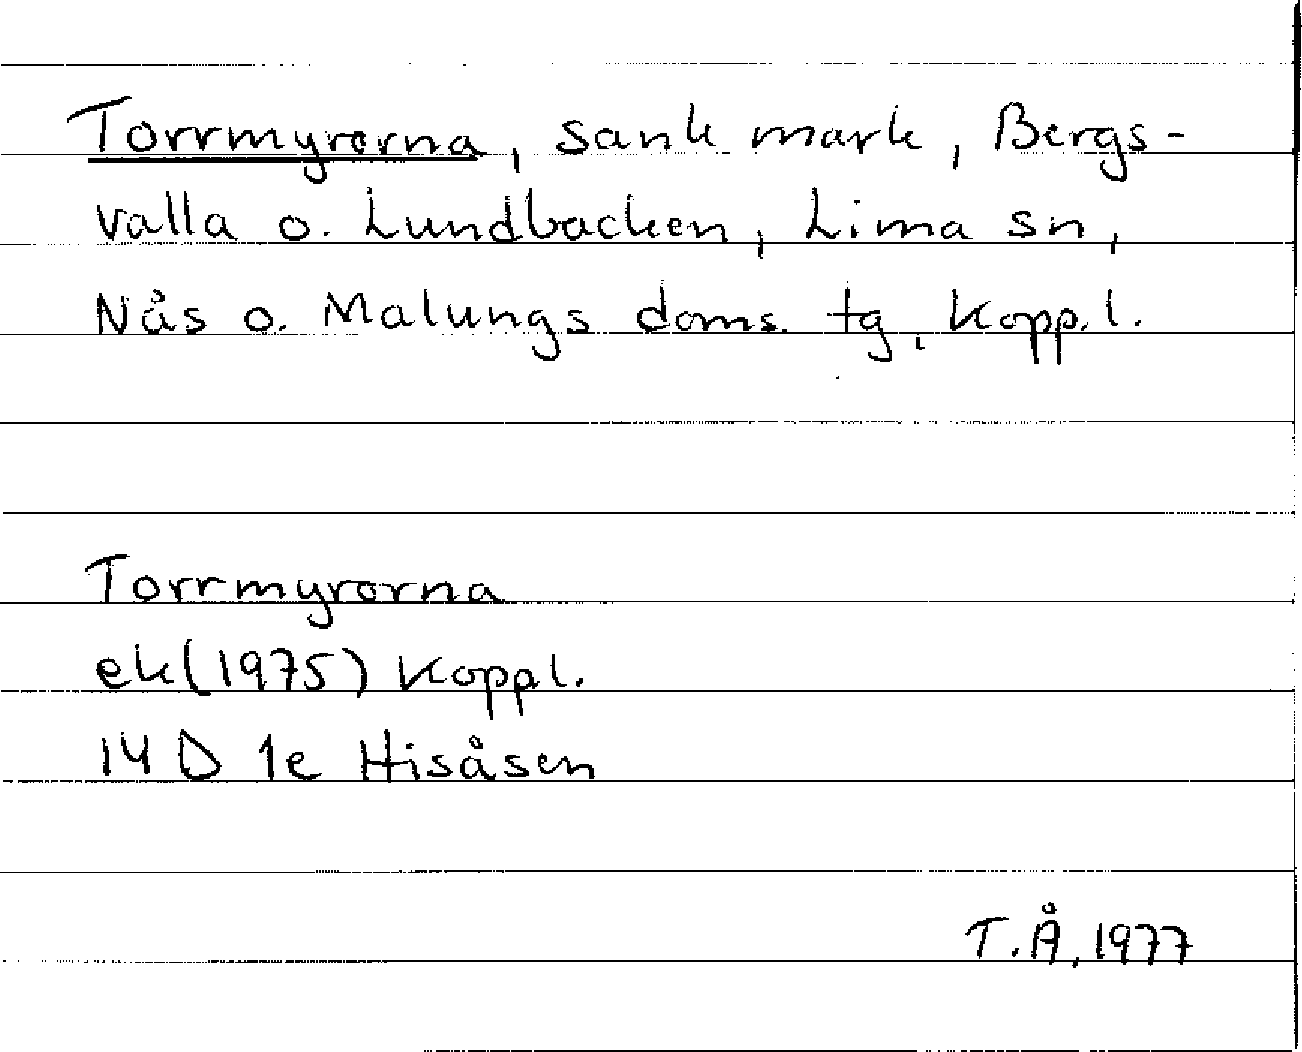 Torrmyrorna, sank mark, Bergs-
valla o. Lundbacken, Lima sn,
Nås o. Malungs doms. tg, Kopp. l.
Torrmyrorna
ek (1975) Koppl.
14 D 1e Hisåsen
T.Å, 1977